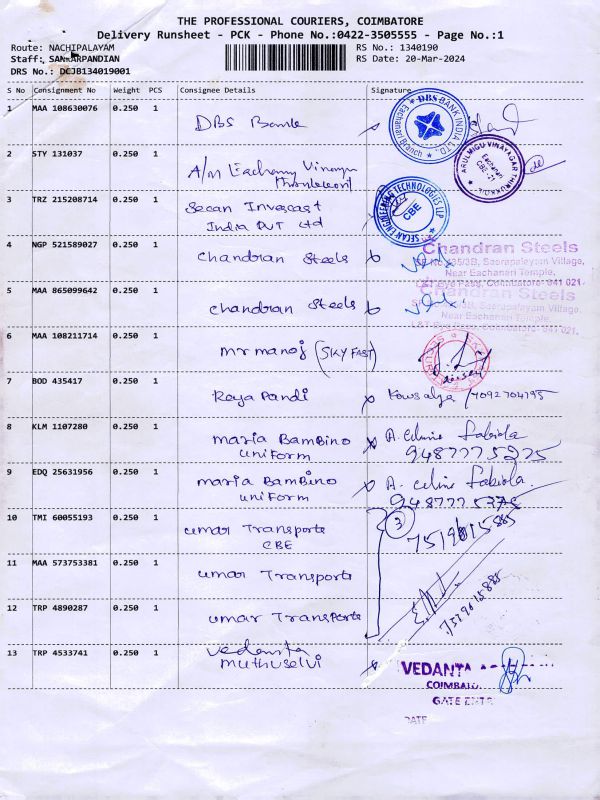 THE PROFESSIONAL COURIERS, COIMBATORE
Delivery Runsheet - PCK - Phone No.:0422-3505555 - Page No.:1
Route: NACHIPALAYAM RS No.: 1340190
Staff: SANKARPANDIAN RS Date: 20-Mar-2024
DRS No.: DCJB134019001
S No Consignment No Weight PCS Consignee Details Signature
1 MAA 108630076 0.250 1 DBS Bank
DBS BANK INDIA LTD.
Eachanari Branch
2 STY 131037 0.250 1 A/m Eachanary Vinayagar
ARULMIGU VINAYAGAR
Eachanari
CBE - 21
3 TRZ 215208714 0.250 1 Secan Invascast
India Pvt Ltd
SECAN ENGINEERING TECHNOLOGIES LLP
CBE
4 NGP 521589027 0.250 1 Chandran Steels
Chandran Steels
Near Eachanari Temple,
L&T Bye Pass, Coimbatore- 641 021.
5 MAA 865099642 0.250 1 Chandran Steels
Chandran Steels
Near Eachanari Temple,
L&T Bye Pass, Coimbatore- 641 021.
6 MAA 108211714 0.250 1 Mr Manoj (SKY FAST)
7 BOD 435417 0.250 1 Reya Pandi Kowsalya / 7092704795
8 KLM 1107280 0.250 1 Maria Bambino A. Celine Fabiola
Uniform 9487775275
9 EDQ 25631956 0.250 1 Maria Bambino A. Celine Fabiola.
Uniform
10 TMI 60055193 0.250 1 Umar Transports 3
CBE 7519015885
11 MAA 573753381 0.250 1 Umar Transports
12 TRP 4890287 0.250 1 Umar Transports
13 TRP 4533741 0.250 1 Vedanta
Muthuselvi
VEDANTA
COIMBATO
GATE ENTR
DATE